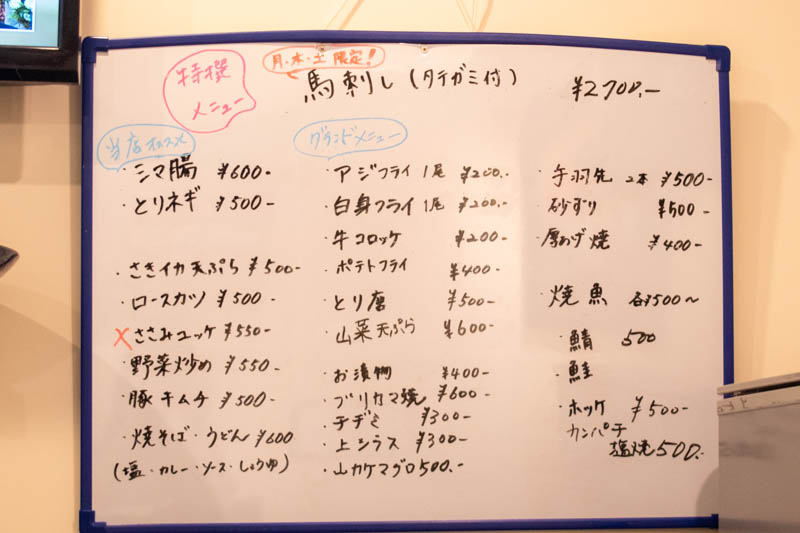 特撰
メニュー
月・木・土 限定!
馬刺し (タテガミ付) ¥2700.-
当店オススメ
・シマ腸 ¥600-
・とりネギ ¥500-
・さきイカ天ぷら ¥500-
・ロースカツ ¥500-
×ささみユッケ ¥550-
・野菜炒め ¥550-
・豚キムチ ¥500-
・焼そば・うどん ¥600
(塩・カレー・ソース・しょうゆ)
グランドメニュー
・アジフライ 1尾 ¥200.-
・白身フライ 1尾 ¥200.-
・牛コロッケ ¥200-
・ポテトフライ ¥400-
・とり唐 ¥500-
・山菜天ぷら ¥600-
・お漬物 ¥400-
・ブリカマ焼 ¥600-
・チヂミ ¥300-
・上シラス ¥300-
・山カケマグロ 500.-
・手羽先 2本 ¥500-
・砂ずり ¥500-
・厚あげ焼 ¥400-
・焼魚 各¥500〜
・鯖 500
・鮭
・ホッケ ¥500-
カンパチ
塩焼 500.-